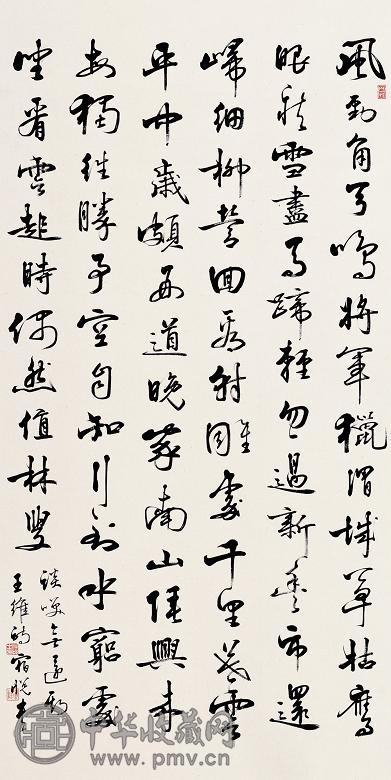 風勁角弓鳴將軍獵渭城草枯鷹
眼疾雪盡馬蹄輕忽過新豐市還
歸細柳營回看射雕處千里暮雲
平中歲頗好道晚家南山陲興來
每獨往勝事空自知行到水窮處
坐看雲起時偶然值林叟
談笑無還期
王維詩宿悦書
中华收藏网
www.pmv.cn